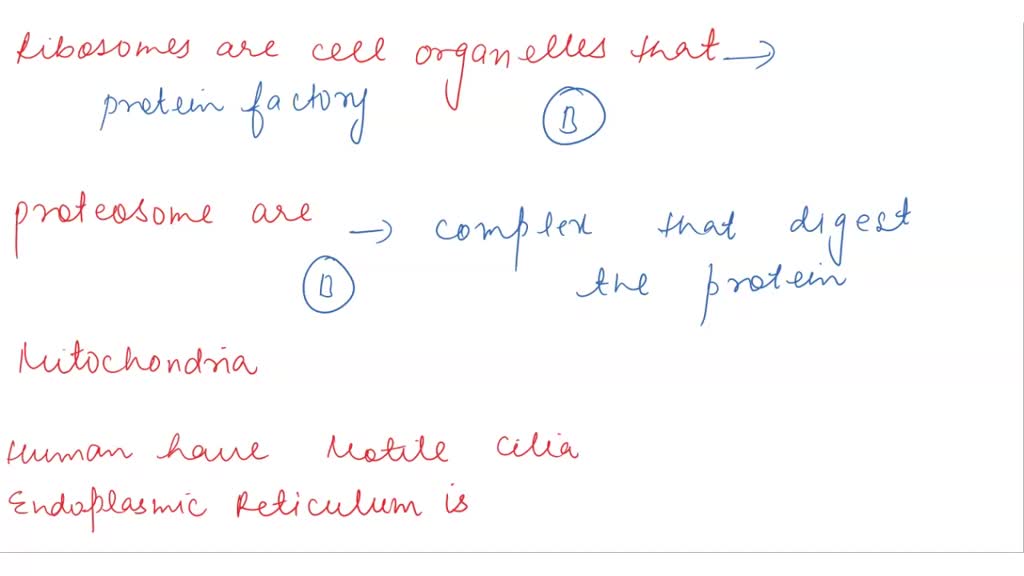 Ribosomes are cell organelles that →
protein factory B
proteosome are → complex that digest
B the protein
Mitochondria
Human have Motile Cilia
Endoplasmic Reticulum is